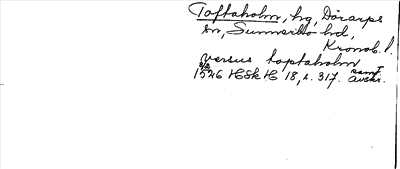 Toftaholm, hg, Dörarps
sn, Sunnerbo hd,
Kronob. l.
versus toptaholm
8/3 1546 HSkH 18, s. 317. samt. avskr.